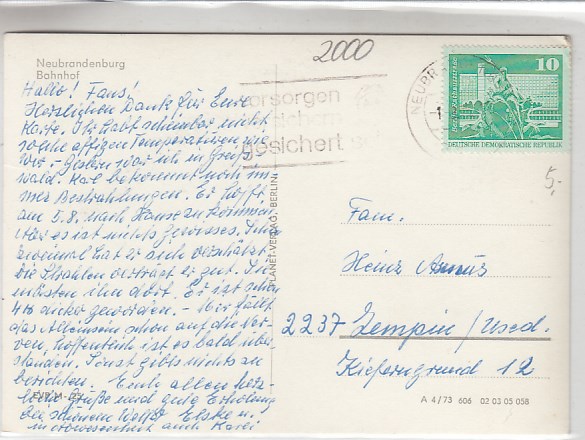 Neubrandenburg
Bahnhof
2000
Hallo! Fans!
Herzlichen Dank für Eure
Karte. Ihr habt scheinbar nicht
solche affigen Temperaturen wie
wir. Gestern war ich in Greifs-
wald. Karl bekommt noch im-
mer Bestrahlungen. Er hofft,
am 5.8. nach Hause zu kommen
aber es ist nichts gewisses.
zweimal hat er sich verschätzt
die Strahlen verträgt er gut. Sie
mästen ihn dort. Er ist schon
4 kg dicker geworden. - Mir fällt
das Alleinsein schon auf die Ner-
ven, hoffentlich ist es bald über-
standen. Sonst gibts nichts zu
berichten. - Euch allen herz-
liche Grüße und gute Erholung
bei schönem Wetter Elske u.
in Abwesenheit auch Karl
EVP M -,25
PLANET-VERLAG, BERLIN
vorsorgen
gesichert s
NEUBR
10
DEUTSCHE DEMOKRATISCHE REPUBLIK
5,-
Fam.
Heinz
2237 Zempin/Used.
Kieferngrund 12
A 4/73 606 02 03 05 058